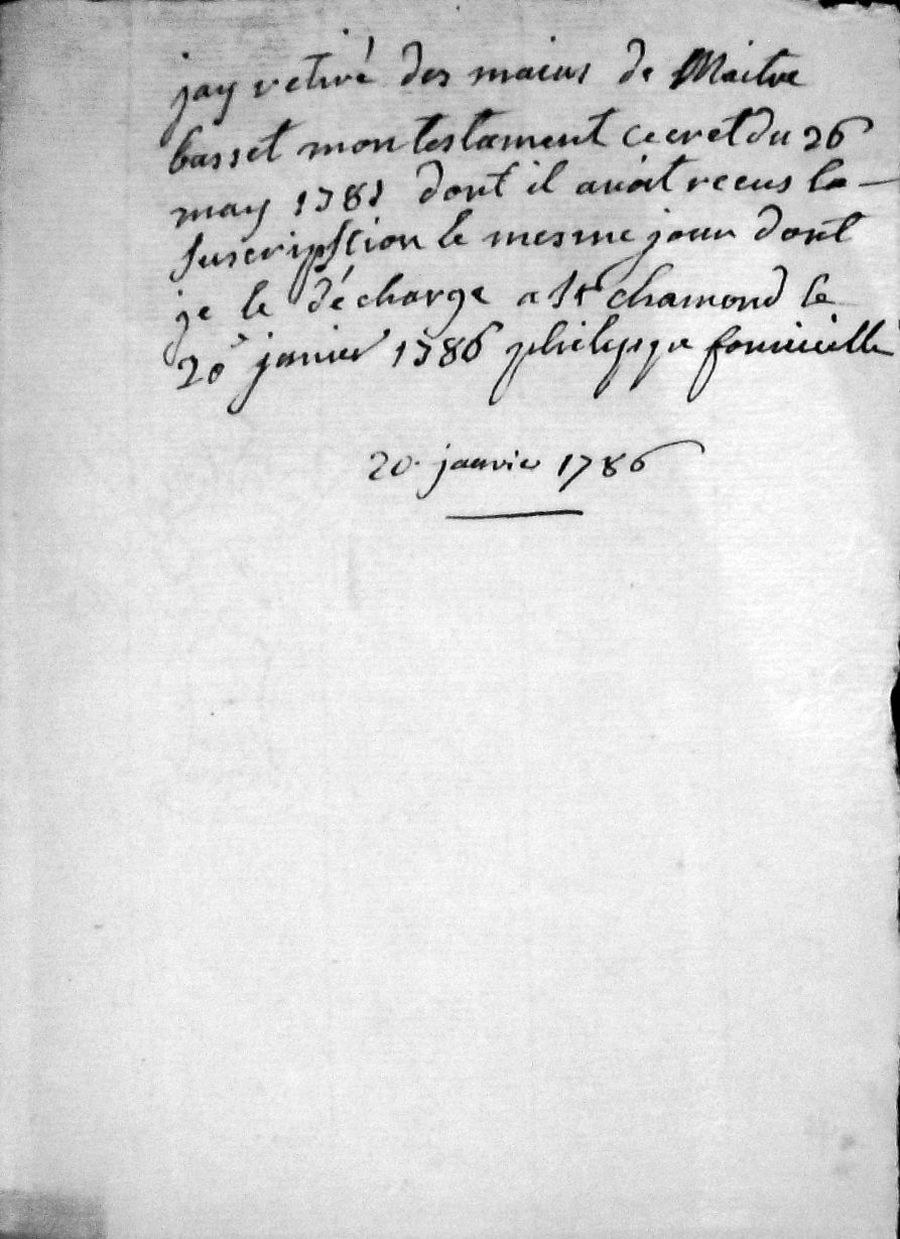 jay retiré des mains de Maitre
basset mon testament cecret du 26
may 1781 dont il avoit receus la
suscripstion le mesme jour dont
je le décharge a st chamond le
20 janvier 1786 philippe
20 janvier 1786